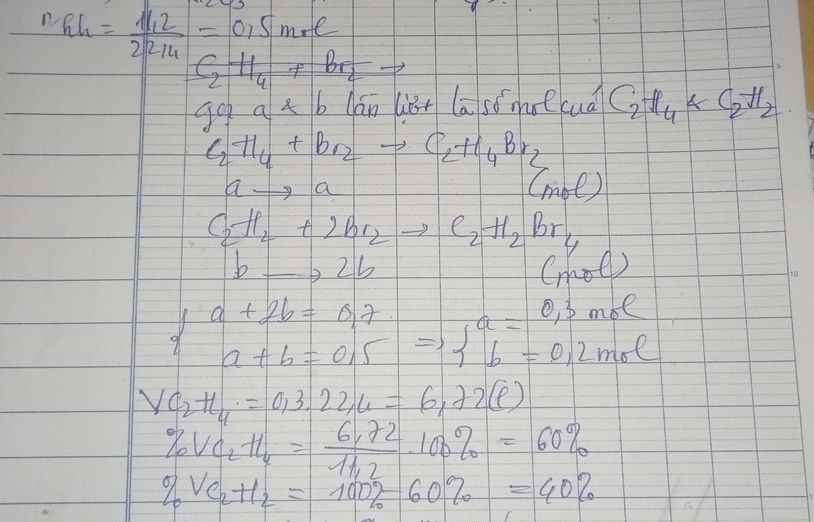 nhh = 11,2 / 22,4 = 0,5 mol
C2H4 + Br2 →
gọi a & b lần lượt là số mol của C2H4 & C2H2.
C2H4 + Br2 → C2H4Br2
a → a (mol)
C2H2 + 2Br2 → C2H2Br4
b → 2b (mol)
{ a + 2b = 0,7 ⇒ { a = 0,3 mol
a + b = 0,5 b = 0,2 mol
VC2H4 = 0,3.22,4 = 6,72(l)
%VC2H4 = 6,72 / 11,2 .100% = 60%
%VC2H2 = 100% 60% = 40%